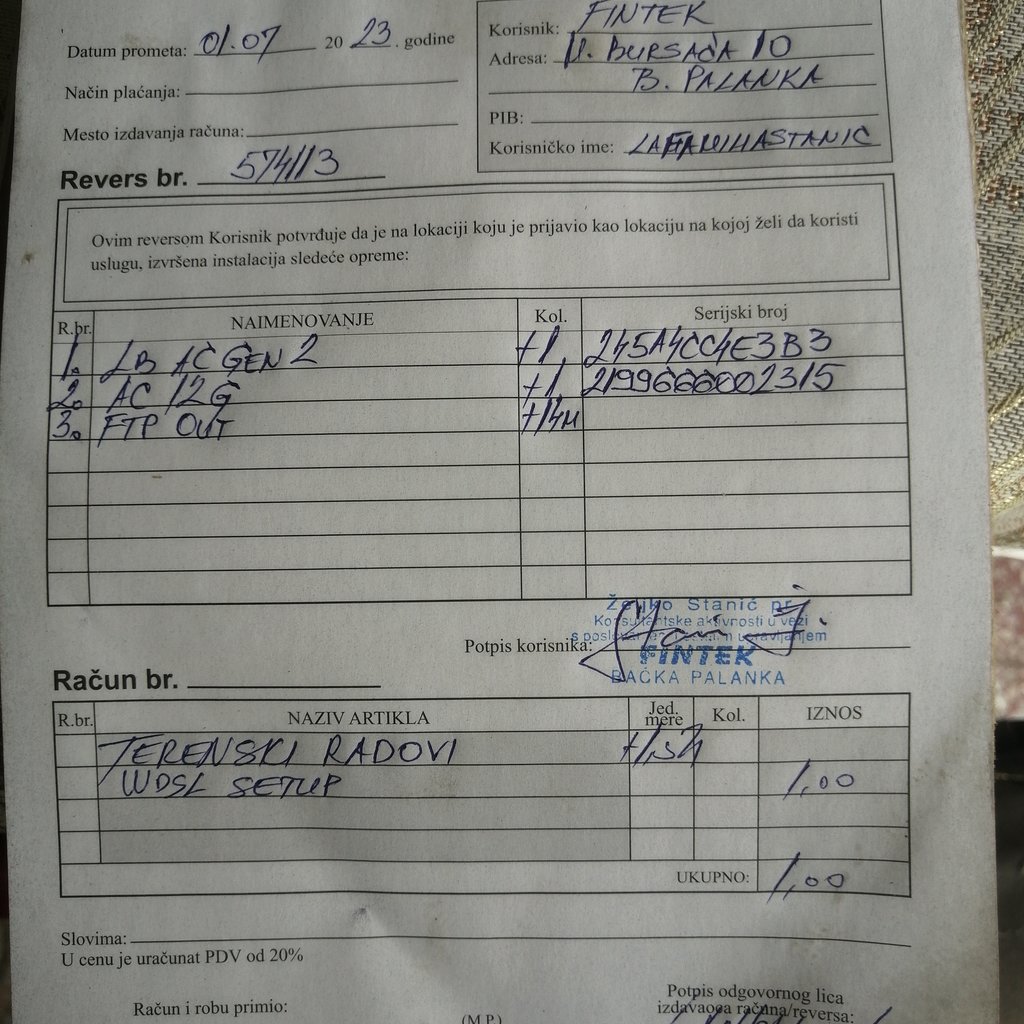 Datum prometa: 01.07 2023. godine
Način plaćanja:
Mesto izdavanja računa:
Korisnik: FINTEK
Adresa: U. BURSAĆA 10
B. PALANKA
PIB:
Korisničko ime:
Revers br. 574113
Ovim reversom Korisnik potvrđuje da je na lokaciji koju je prijavio kao lokaciju na kojoj želi da koristi
uslugu, izvršena instalacija sledeće opreme:
R.br. NAIMENOVANJE Kol. Serijski broj
1. LB AC GEN 2 +1, 245A4CC4E3B3
2. AC 12G +1,
3. FTP OUT +14m
Željko Stanić pr
Konsultantske aktivnosti u vezi
Potpis korisnika:
FINTEK
BAČKA PALANKA
Račun br.
R.br. NAZIV ARTIKLA Jed. mere Kol. IZNOS
TERENSKI RADOVI
WDSL SETUP 1,00
UKUPNO: 1,00
Slovima:
U cenu je uračunat PDV od 20%
Račun i robu primio:
(M.P.)
Potpis odgovornog lica
izdavaoca računa/reversa: